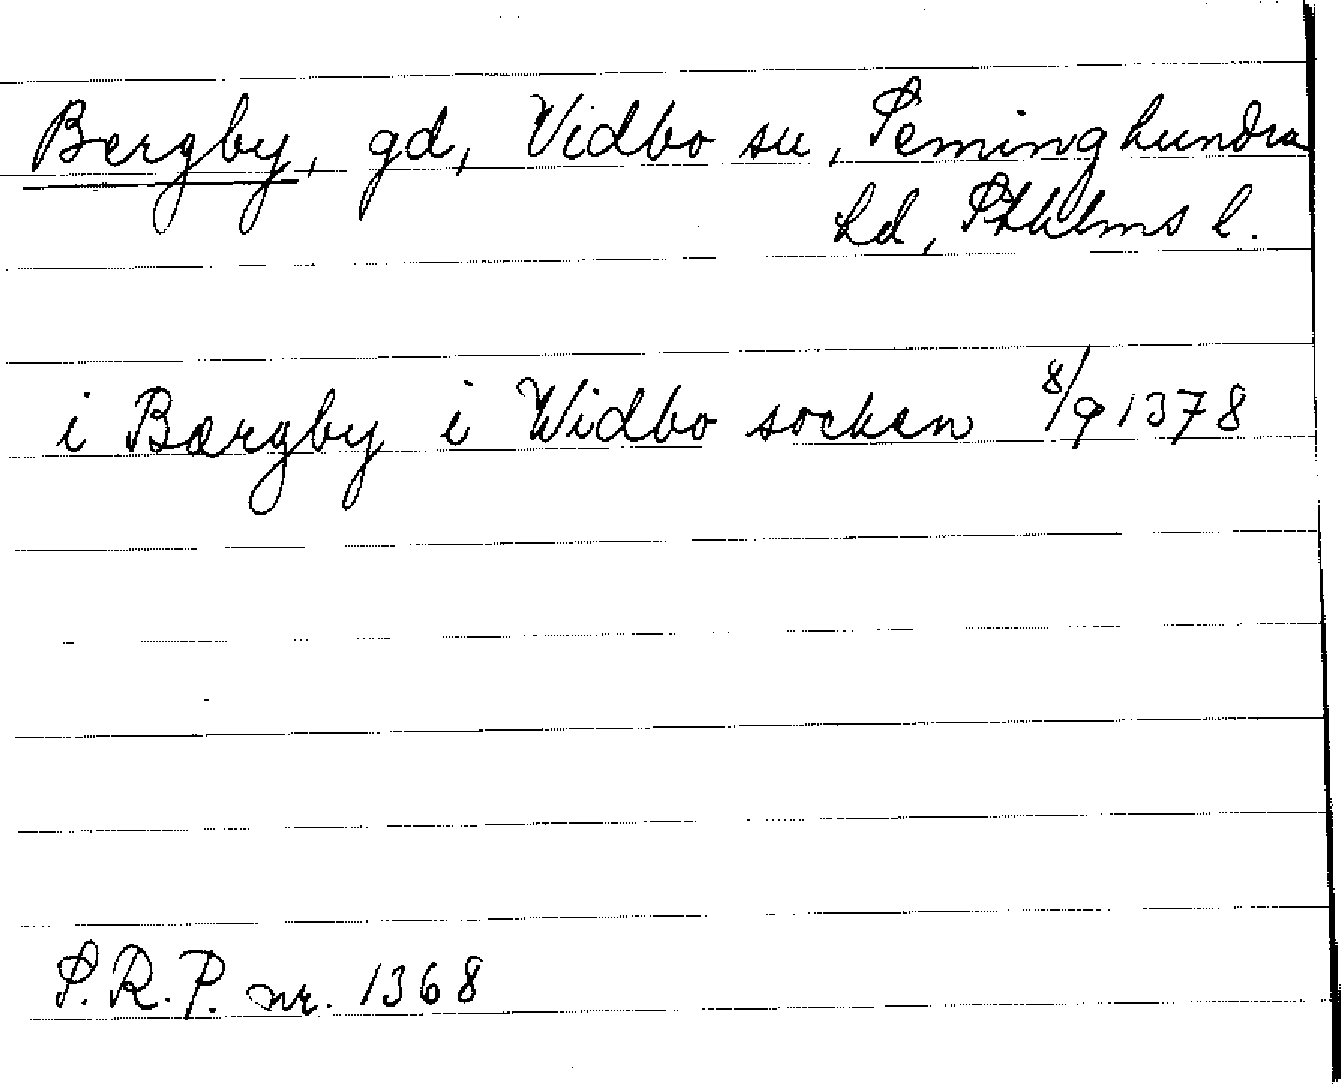 Bergby, gd, Vidbo sn, Seminghundra
hd, Sthlms l.
i Bærgby i Widbo sockæn 8/9 1378
S.R.P. nr. 1368